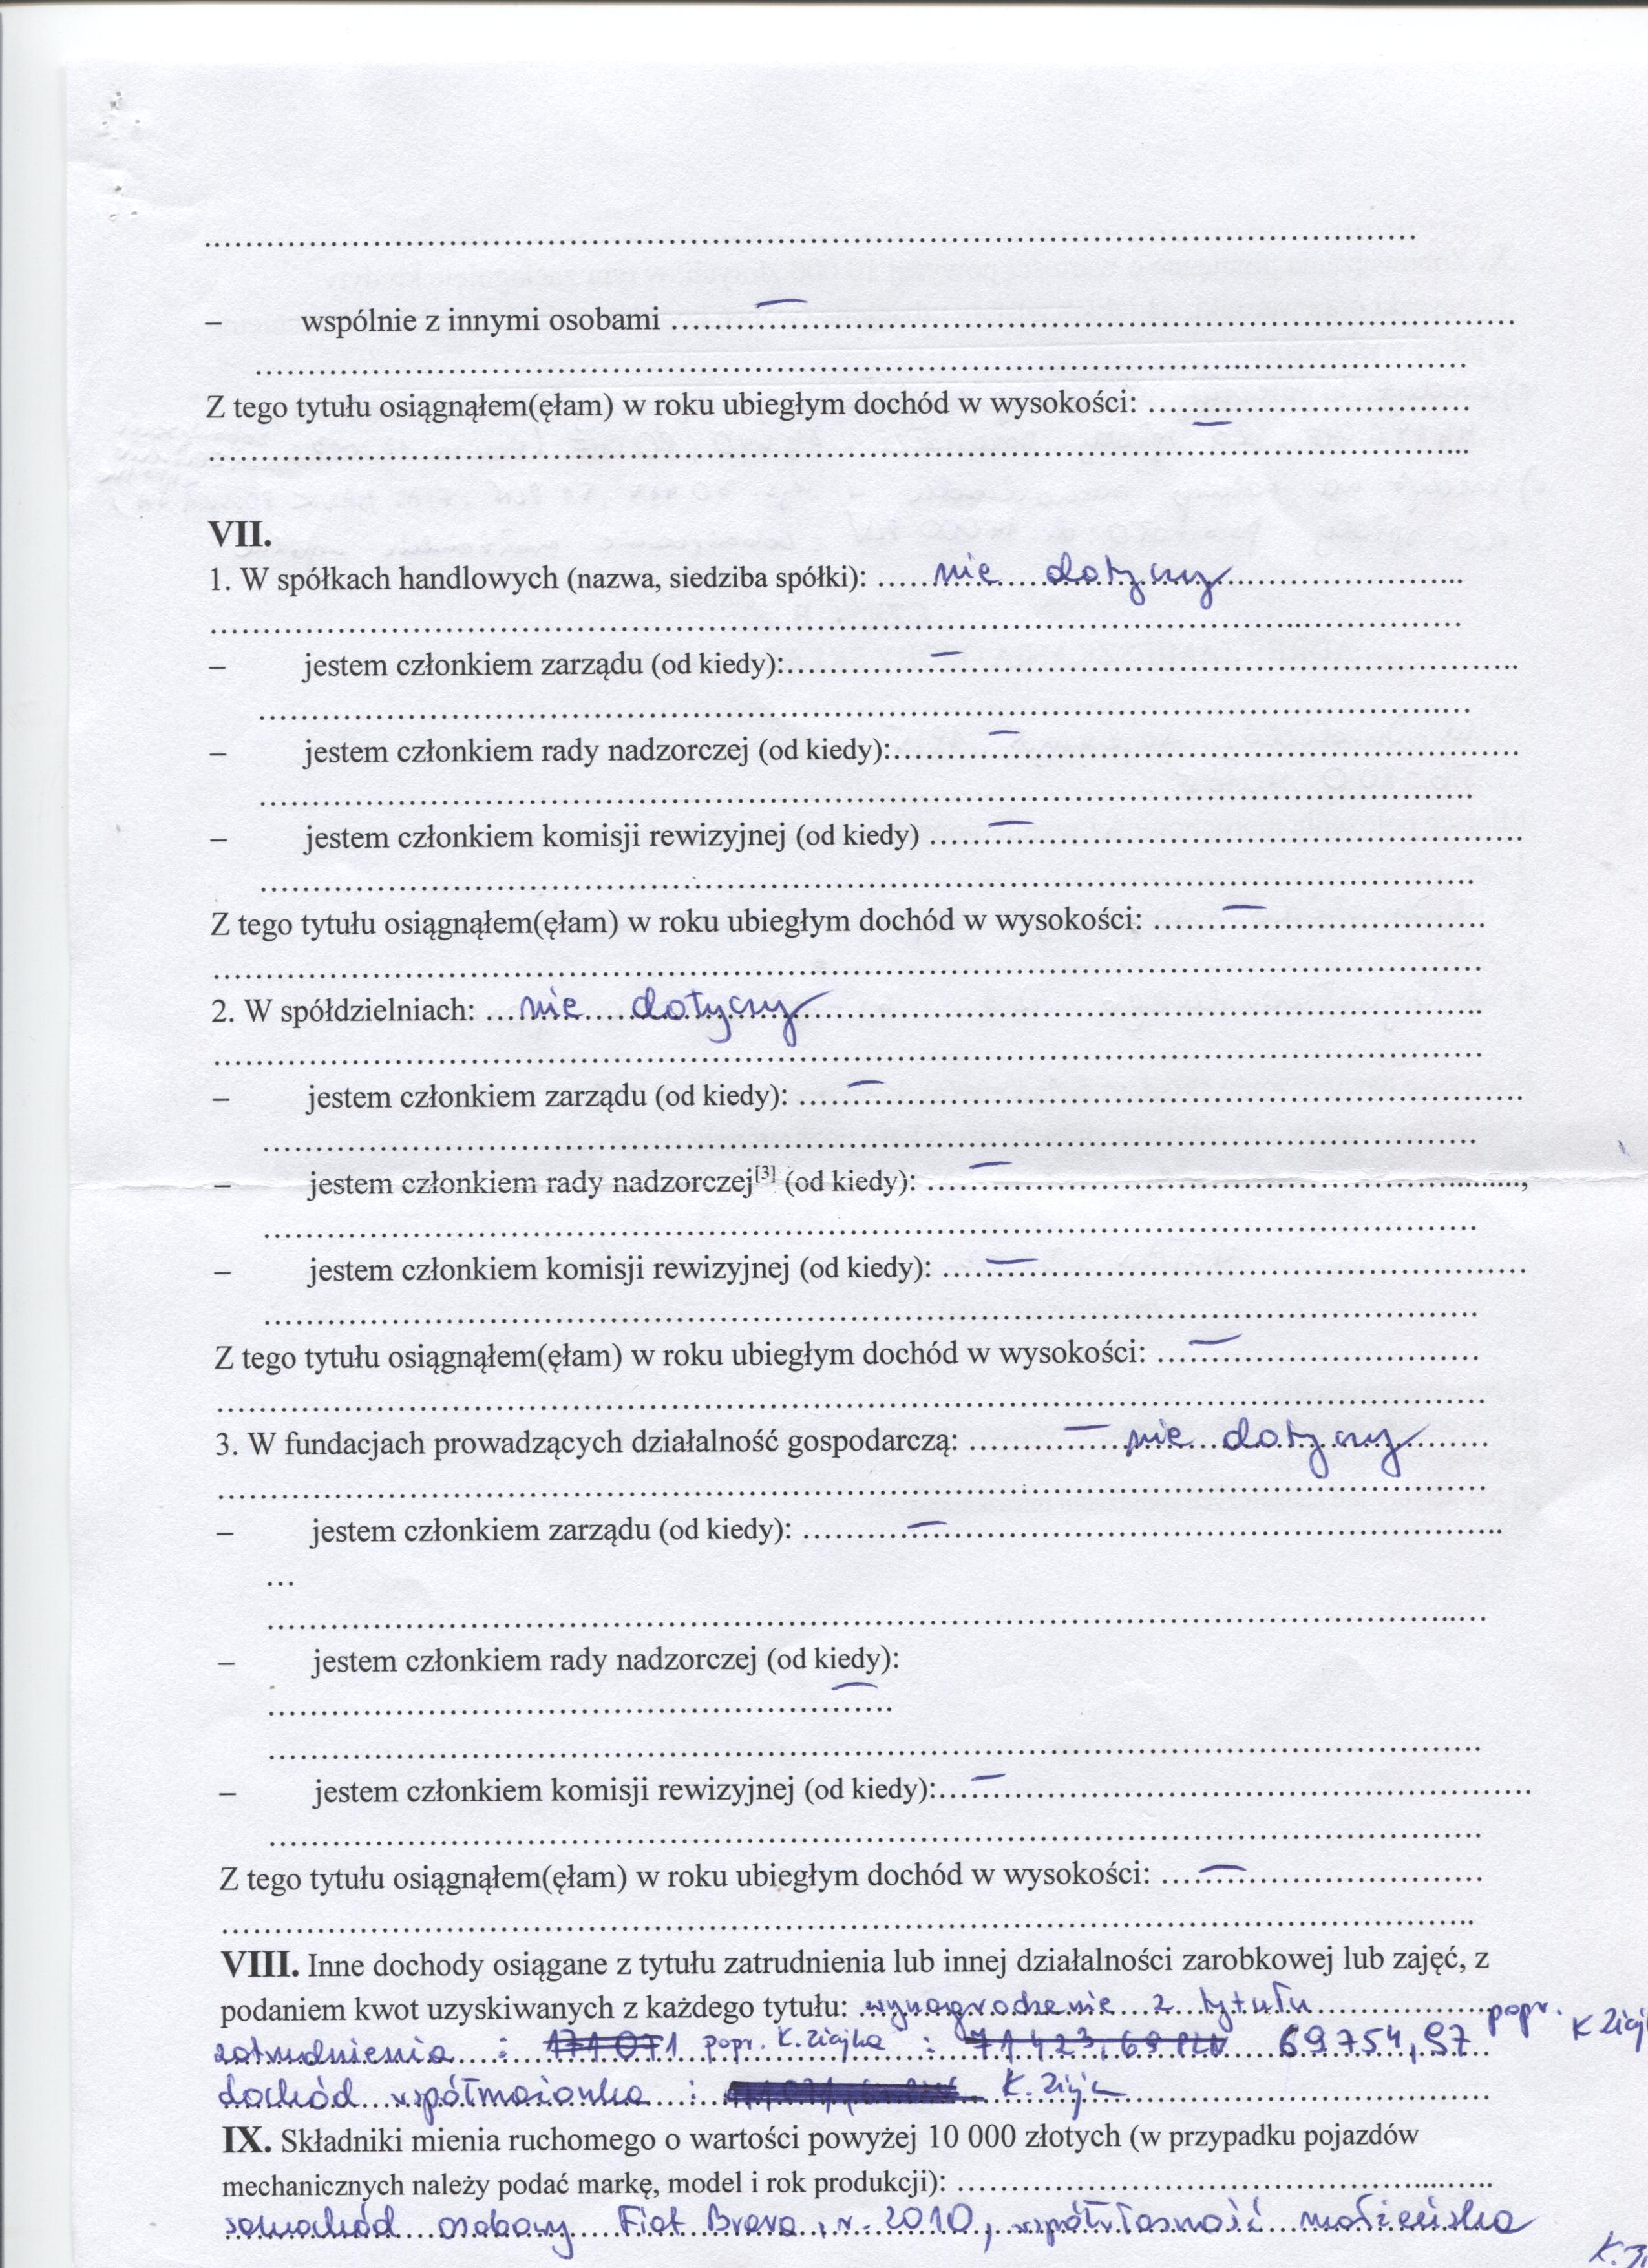 – wspólnie z innymi osobami ..... – .....
Z tego tytułu osiągnąłem(ęłam) w roku ubiegłym dochód w wysokości: ..... – .....
VII.
1. W spółkach handlowych (nazwa, siedziba spółki): ..... nie dotyczy .....
– jestem członkiem zarządu (od kiedy):..... – .....
– jestem członkiem rady nadzorczej (od kiedy):..... – .....
– jestem członkiem komisji rewizyjnej (od kiedy) ..... – .....
Z tego tytułu osiągnąłem(ęłam) w roku ubiegłym dochód w wysokości: ..... – .....
2. W spółdzielniach: ... nie dotyczy .....
– jestem członkiem zarządu (od kiedy): ..... – .....
– jestem członkiem rady nadzorczej[3] (od kiedy): ..... – .....,
– jestem członkiem komisji rewizyjnej (od kiedy): ..... – .....
Z tego tytułu osiągnąłem(ęłam) w roku ubiegłym dochód w wysokości: ..... – .....
3. W fundacjach prowadzących działalność gospodarczą: ..... – nie dotyczy .....
– jestem członkiem zarządu (od kiedy): ..... – .....
...
– jestem członkiem rady nadzorczej (od kiedy):
..... – .....
– jestem członkiem komisji rewizyjnej (od kiedy):..... – .....
Z tego tytułu osiągnąłem(ęłam) w roku ubiegłym dochód w wysokości: ..... – .....
VIII. Inne dochody osiągane z tytułu zatrudnienia lub innej działalności zarobkowej lub zajęć, z
podaniem kwot uzyskiwanych z każdego tytułu: wynagrodzenie z tytułu popr.
zatrudnienia : popr. K. Ziajka : 71 423,69 PLN 69 754,97
dochód współmałżonka :
IX. Składniki mienia ruchomego o wartości powyżej 10 000 złotych (w przypadku pojazdów
mechanicznych należy podać markę, model i rok produkcji): .....
samochód osobowy Fiat Brava, r. 2010, współwłasność małżeńska